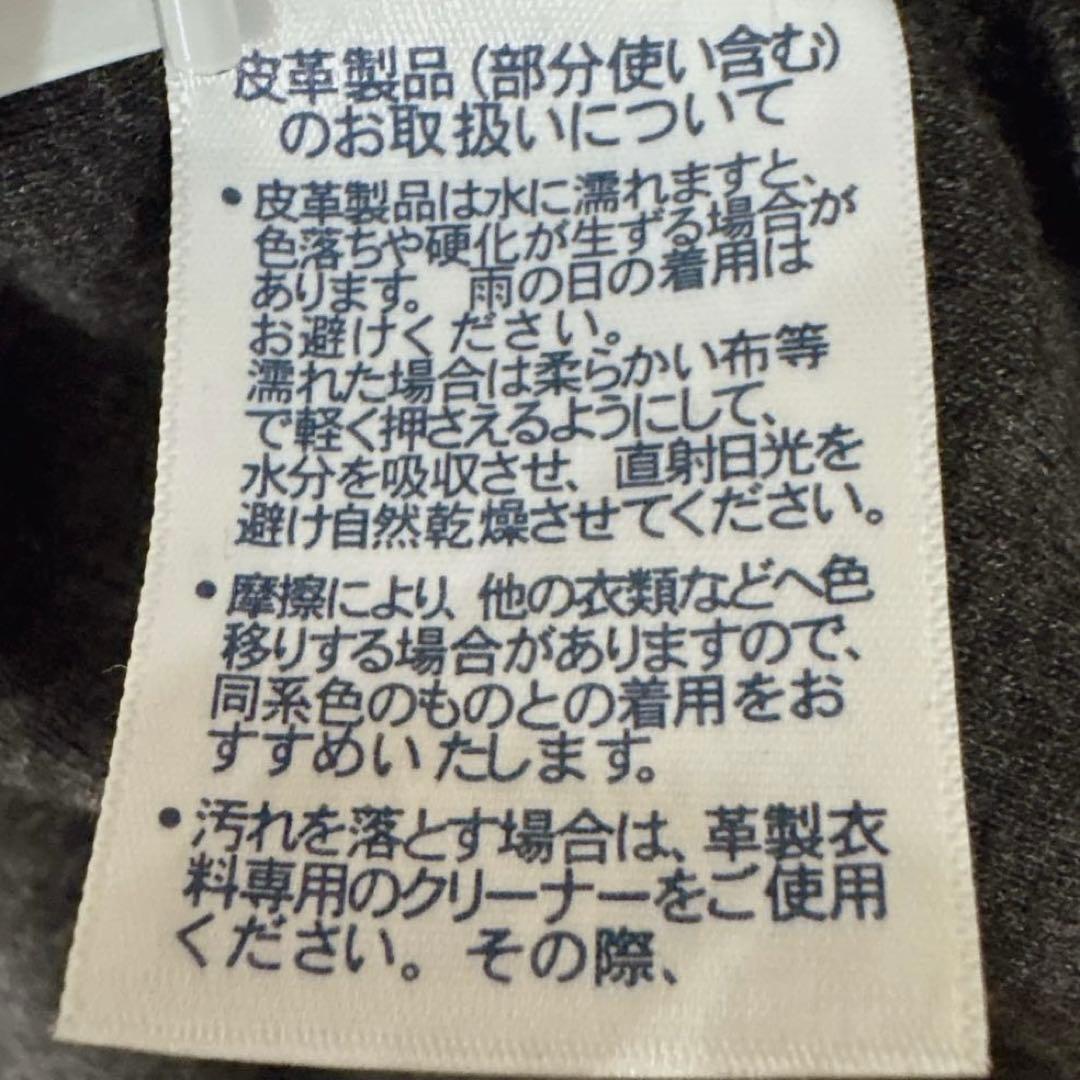 皮革製品(部分使い含む)
のお取扱いについて
・皮革製品は水に濡れますと、
色落ちや硬化が生ずる場合が
あります。 雨の日の着用は
お避けください。
濡れた場合は柔らかい布等
で軽く押さえるようにして、
水分を吸収させ、直射日光を
避け自然乾燥させてください。
・摩擦により、他の衣類などへ色
移りする場合がありますので、
同系色のものとの着用をお
すすめいたします。
・汚れを落とす場合は、革製衣
料専用のクリーナーをご使用
ください。 その際、